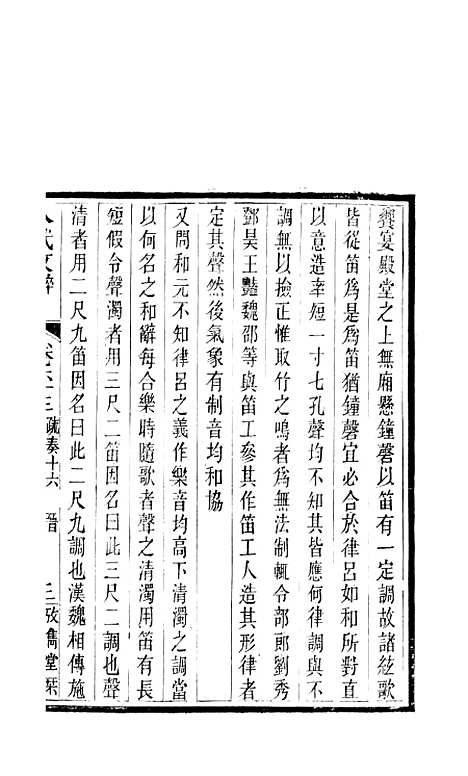 饗宴殿堂之上無廂懸鐘磬以笛有一定調故諸絃歌
皆從笛為是為笛猶鐘磬宜必合於律呂如和所對直
以意造率短一寸七孔聲均不知其皆應何律調與不
調無以檢正惟取竹之鳴者為無法制輒令部郎劉秀
鄧昊王豔魏邵等與笛工參其作笛工人造其形律者
定其聲然後氣象有制音均和協
又問和元不知律呂之義作樂音均高下清濁之調當
以何名之和辭每合樂時隨歌者聲之清濁用笛有長
短假令聲濁者用三尺二笛因名曰此三尺二調也聲
清者用二尺九笛因名曰此二尺九調也漢魏相傳施
八代文粹
疏奏十六 晉 三 攷雋堂栞